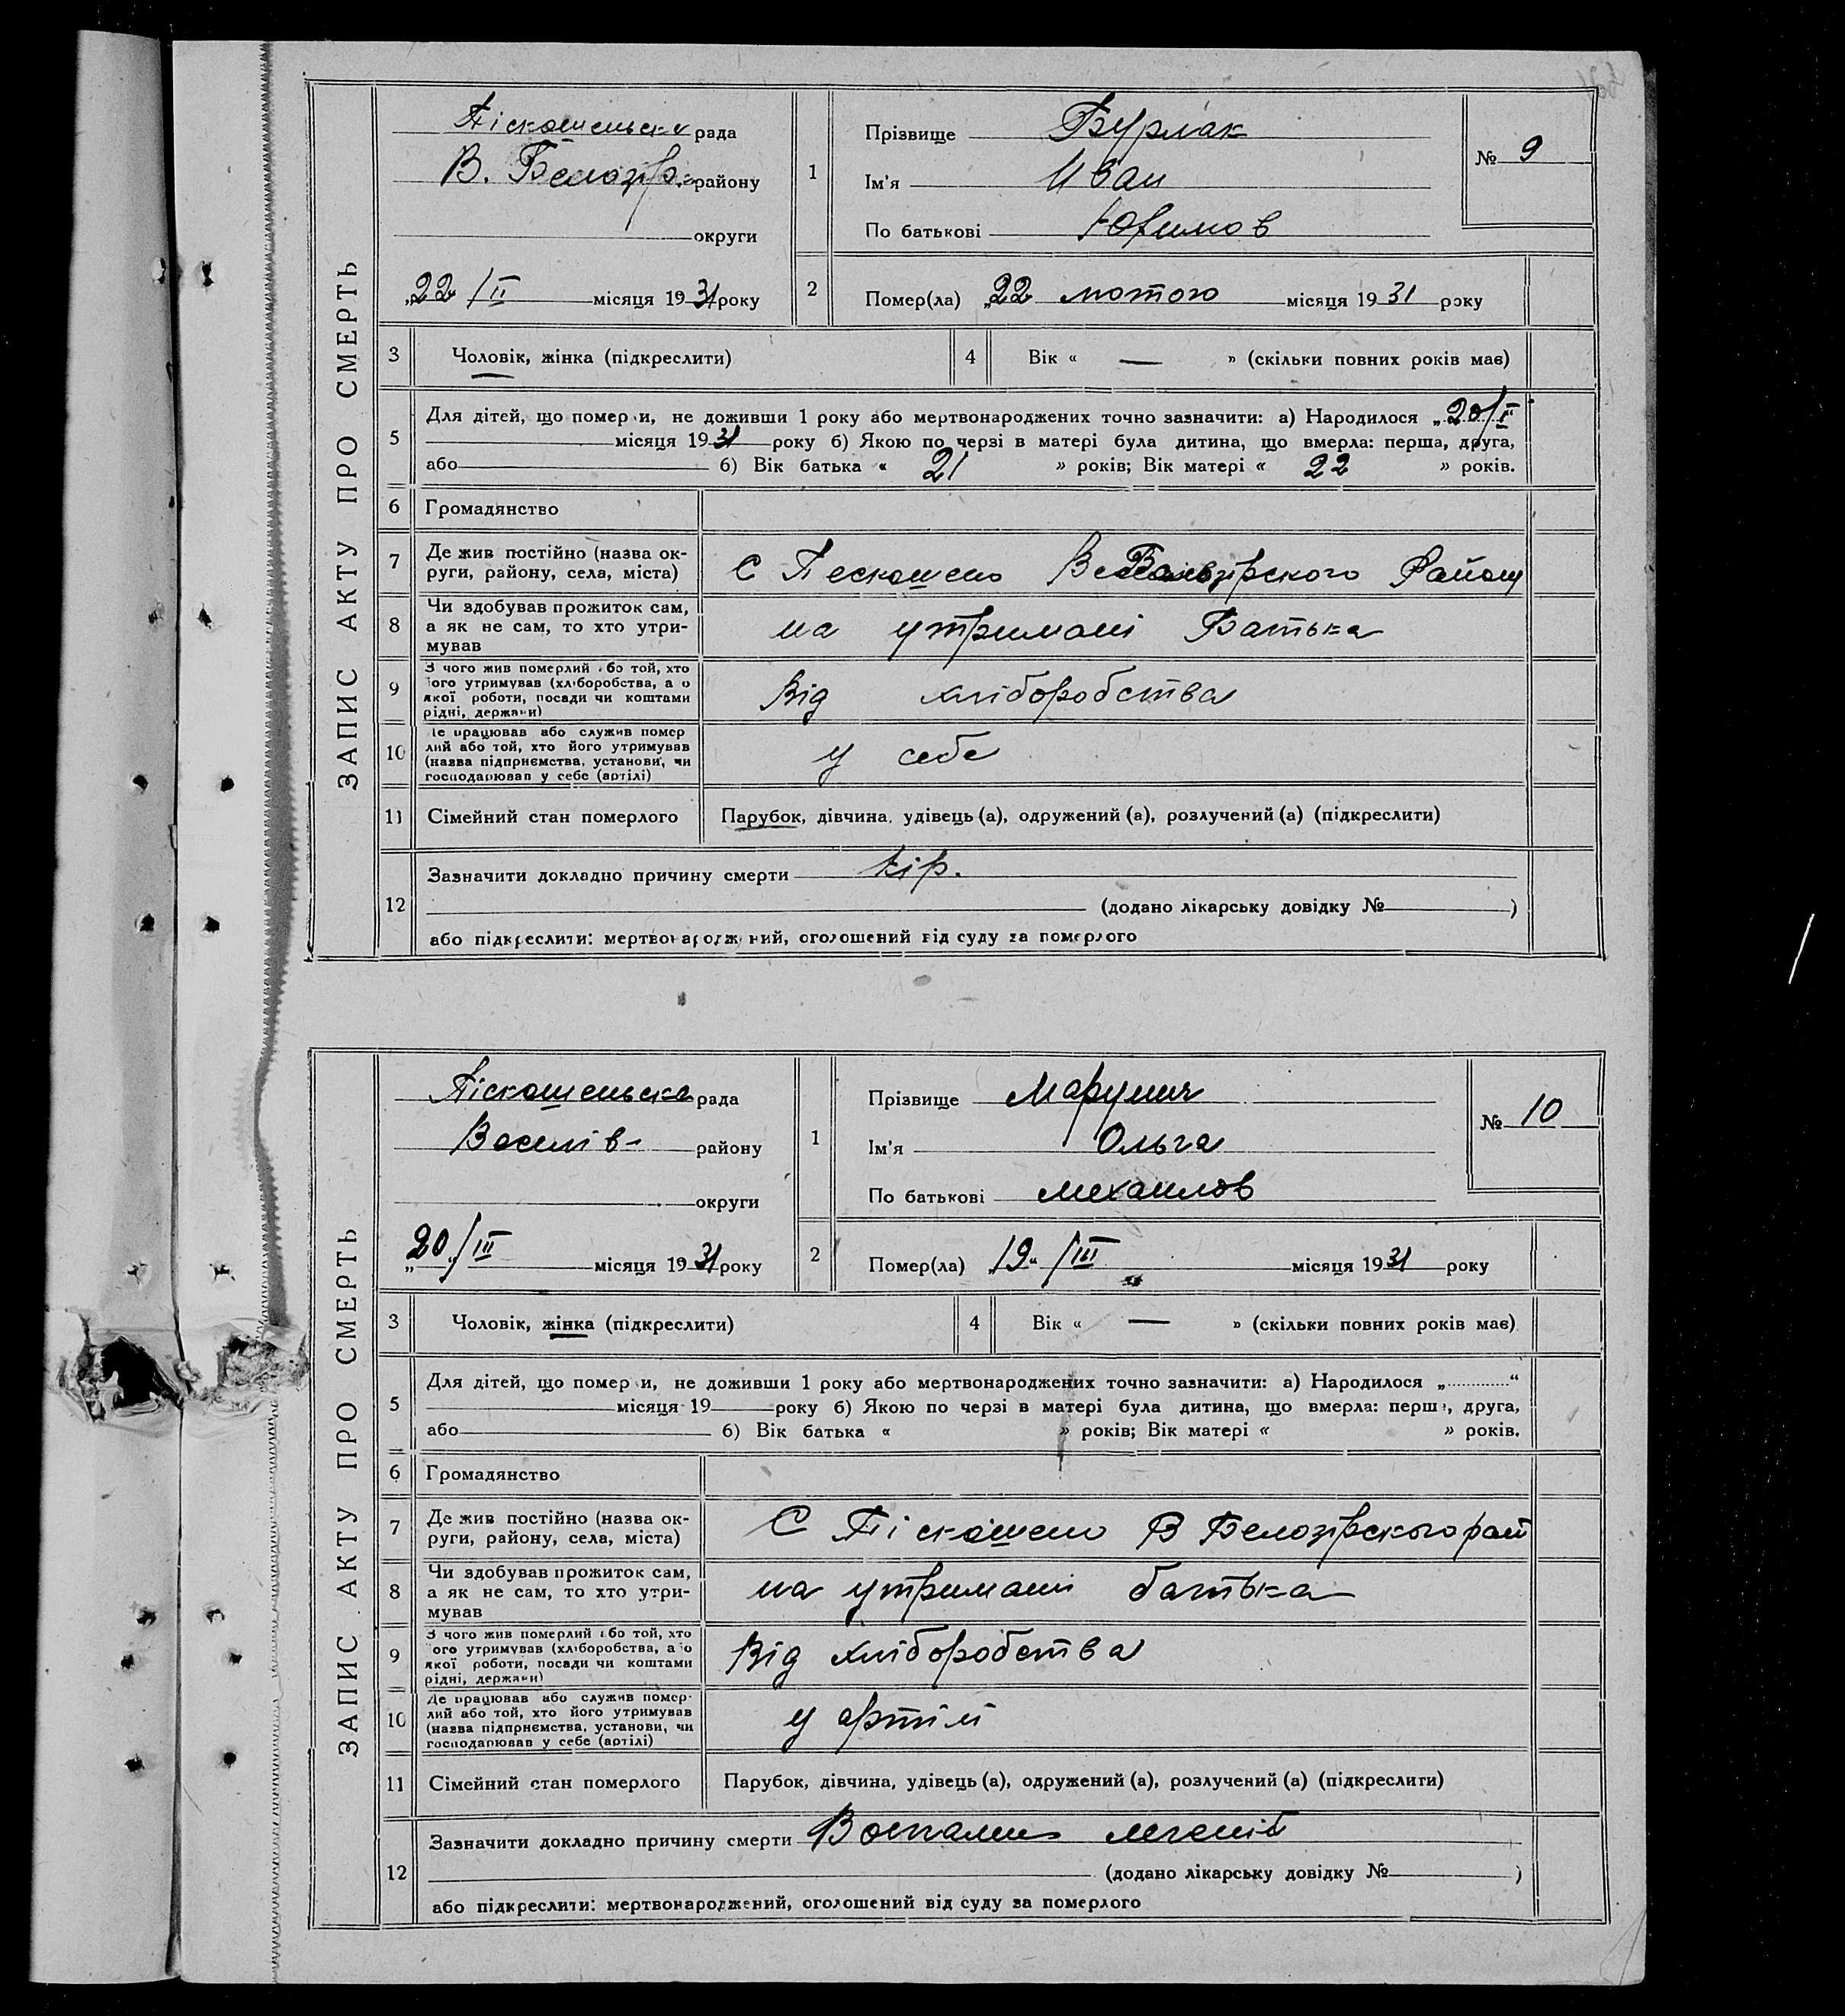 ЗАПИС АКТУ ПРО СМЕРТЬ
Піскошенська рада
В. Белозір. району
округи
„22 /II місяця 1931 року
1
Прізвище Бурлак
Ім'я Иван
По батькові Юхимов
№ 9
2
Помер(ла) „22 лютого місяця 1931 року
3 Чоловік, жінка (підкреслити)
4 Вік « — » (скільки повних років має)
5
Для дітей, що помер и, не доживши 1 року або мертвонароджених точно зазначити: а) Народилося „20/I“
місяця 1931 року б) Якою по черзі в матері була дитина, що вмерла: перша, друга,
або б) Вік батька « 21 » років; Вік матері « 22 » років.
6 Громадянство
7 Де жив постійно (назва ок-
руги, району, села, міста)
С Пескошено Району
8 Чи здобував прожиток сам,
а як не сам, то хто утри-
мував
на утримані Батька
9 З чого жив померлий або той, хто
його утримував (хліборобства, а о
якої роботи, посади чи коштами
рідні, держави)
Від хліборобства
10 Де працював або служив помер
лий або той, хто його утримував
(назва підприємства, установи, чи
господарював у себе (артілі)
у себе
11 Сімейний стан померлого
Парубок, дівчина, удівець (а), одружений (а), розлучений (а) (підкреслити)
12
Зазначити докладно причину смерти кір.
(додано лікарську довідку № )
або підкреслити: мертвонароджений, оголошений від суду за померлого
ЗАПИС АКТУ ПРО СМЕРТЬ
Піскошенська рада
Василів- району
округи
„20„/III місяця 1931 року
1
Прізвище
Ім'я Ольга
По батькові Михаилов
№ 10
2
Помер(ла) „19“ /III місяця 1931 року
3 Чоловік, жінка (підкреслити)
4 Вік « — » (скільки повних років має)
5
Для дітей, що помер и, не доживши 1 року або мертвонароджених точно зазначити: а) Народилося „ “
місяця 19 року б) Якою по черзі в матері була дитина, що вмерла: перша, друга,
або б) Вік батька « » років; Вік матері « » років.
6 Громадянство
7 Де жив постійно (назва ок-
руги, району, села, міста)
С Піскошено В Белозірского рай
8 Чи здобував прожиток сам,
а як не сам, то хто утри-
мував
на утримані батька
9 З чого жив померлий або той, хто
його утримував (хліборобства, або
якої роботи, посади чи коштами
рідні, держави)
Від хліборобства
10 Де працював або служив помер-
лий або той, хто його утримував
(назва підприємства, установи, чи
господарював у себе (артілі)
у артілі
11 Сімейний стан померлого
Парубок, дівчина, удівець (а), одружений (а), розлучений (а) (підкреслити)
12
Зазначити докладно причину смерти легенів
(додано лікарську довідку № )
або підкреслити: мертвонароджений, оголошений від суду за померлого